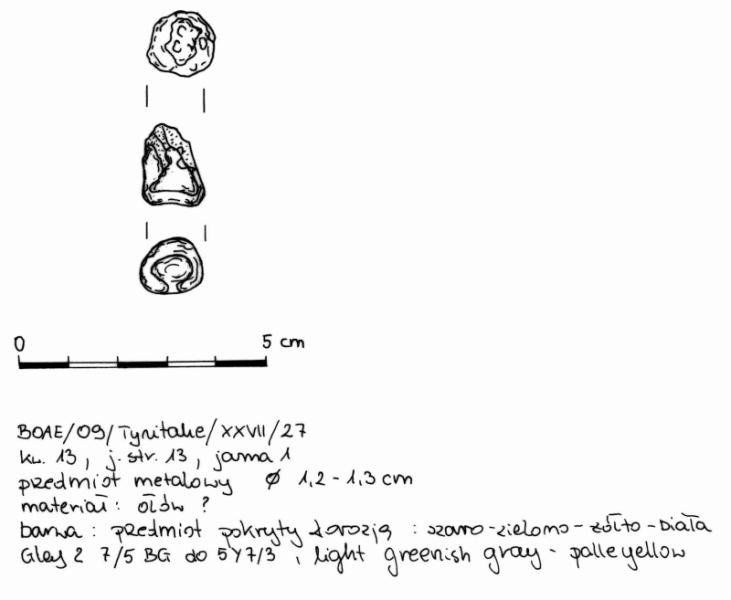 0 5 cm
BOAE/09/Tyritake/XXVII/27
kw. 13, j. str. 13, jama 1
przedmiot metalowy Ø 1,2 - 1,3 cm
materiał: ołów ?
barwa: przedmiot pokryty korozją: szaro-zielono-żółto-biała
Gley 2 7/5 BG do 5Y7/3, light greenish gray - palle yellow